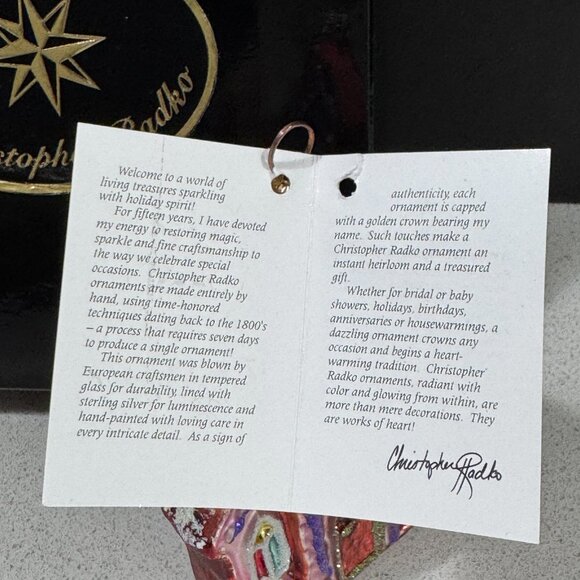 Christopher Radko
Welcome to a world of
living treasures sparkling
with holiday spirit!
For fifteen years, I have devoted
my energy to restoring magic,
sparkle and fine craftsmanship to
the way we celebrate special
occasions. Christopher Radko
ornaments are made entirely by
hand, using time-honored
techniques dating back to the 1800's
– a process that requires seven days
to produce a single ornament!
This ornament was blown by
European craftsmen in tempered
glass for durability, lined with
sterling silver for luminescence and
hand-painted with loving care in
every intricate detail. As a sign of
authenticity, each
ornament is capped
with a golden crown bearing my
name. Such touches make a
Christopher Radko ornament an
instant heirloom and a treasured
gift.
Whether for bridal or baby
showers, holidays, birthdays,
anniversaries or housewarmings, a
dazzling ornament crowns any
occasion and begins a heart-
warming tradition. Christopher
Radko ornaments, radiant with
color and glowing from within, are
more than mere decorations. They
are works of heart!
Christopher Radko